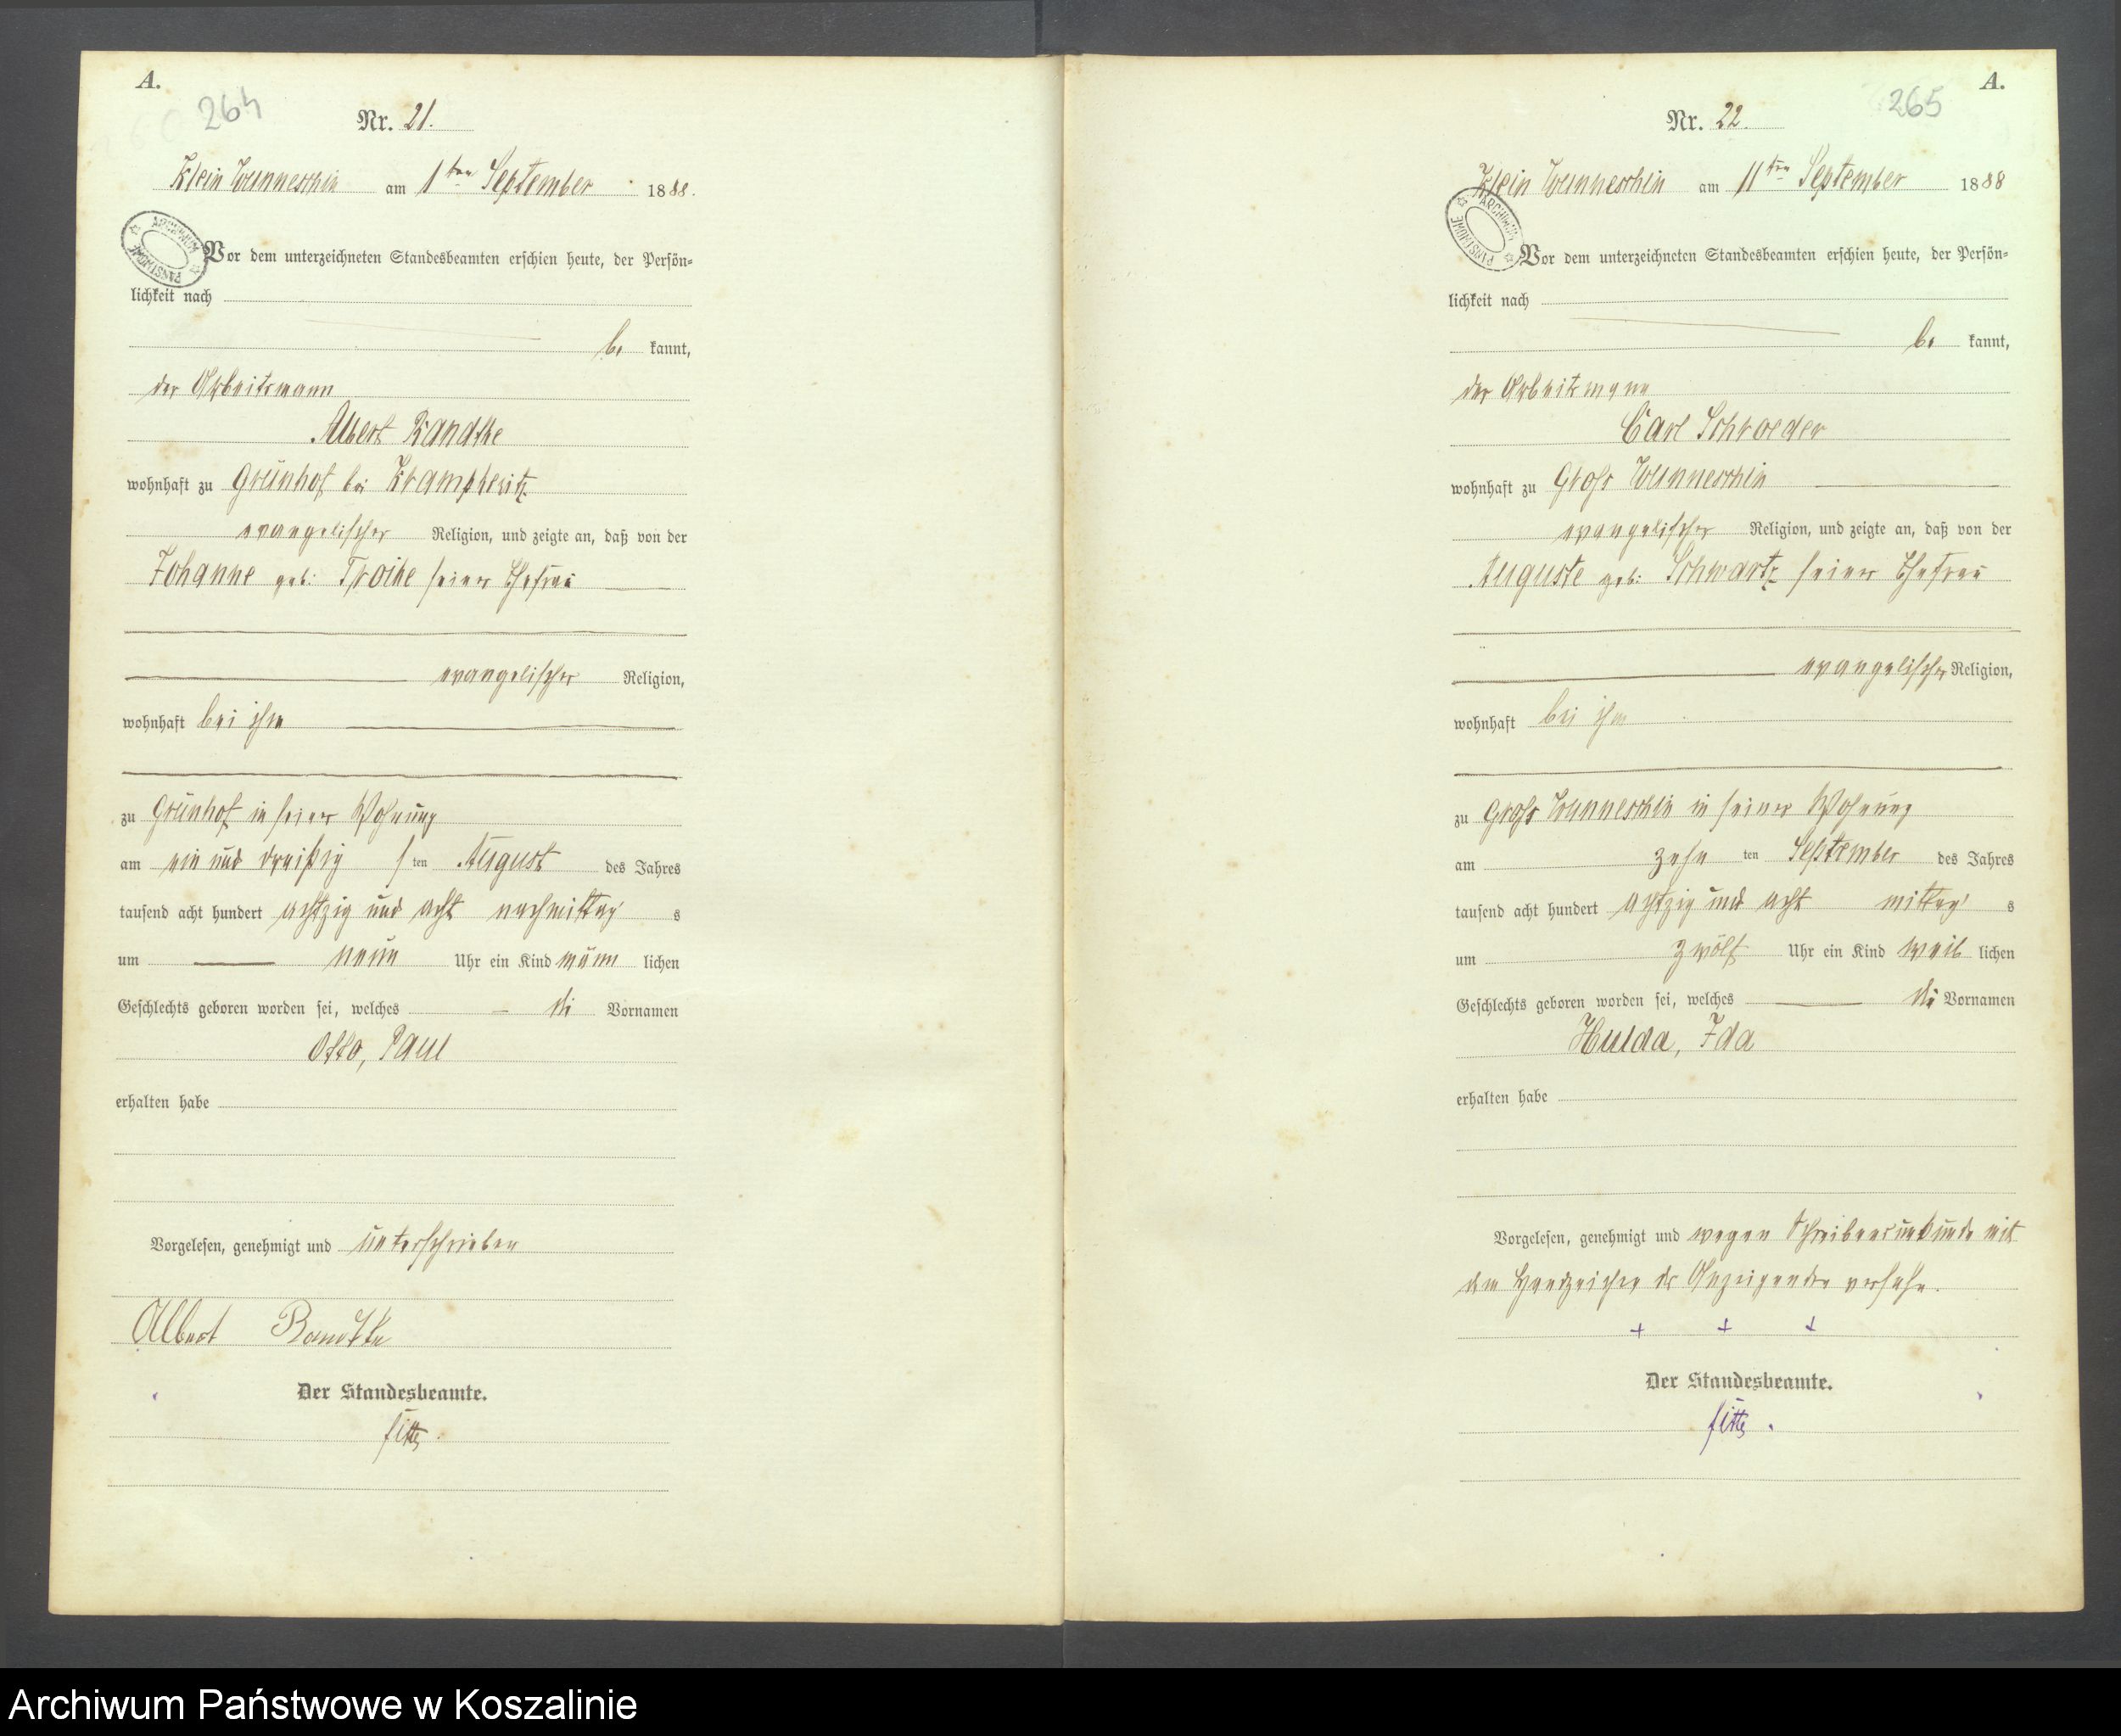 A.
264
Nr. 21.
Klein Wunneschin am 1ten September 1888.
ARCHIWUM PAŃSTWOWE
Vor dem unterzeichneten Standesbeamten erschien heute, der Persön-
lichkeit nach
be kannt,
der Arbeitsmann
Albert Randtke
wohnhaft zu Grünhof bei Krampkewitz
evangelischer Religion, und zeigte an, daß von der
Johanne geb: Troike seiner Ehefrau
evangelischer Religion,
wohnhaft bei ihm
zu Grünhof in seiner Wohnung
am ein und dreißig s ten August des Jahres
tausend acht hundert achtzig und acht nachmittag s
um neun Uhr ein Kind männ lichen
Geschlechts geboren worden sei, welches die Vornamen
Otto, Paul
erhalten habe
Vorgelesen, genehmigt und unterschrieben
Albert Randtke
Der Standesbeamte.
A.
265
Nr. 22.
Klein Wunneschin am 11ten September 1888
ARCHIWUM PAŃSTWOWE
Vor dem unterzeichneten Standesbeamten erschien heute, der Persön-
lichkeit nach
be kannt,
der Arbeitsmann
Carl Schroeder
wohnhaft zu Groß Wunneschin
evangelischer Religion, und zeigte an, daß von der
Auguste geb: Schwartz seiner Ehefrau
evangelischer Religion,
wohnhaft bei ihm
zu Groß Wunneschin in seiner Wohnung
am zehn ten September des Jahres
tausend acht hundert achtzig und acht mittag s
um zwölf Uhr ein Kind weib lichen
Geschlechts geboren worden sei, welches die Vornamen
Hulda, Ida
erhalten habe
Vorgelesen, genehmigt und wegen Schreibensunkunde mit
dem Handzeichen des Anzeigenden versehen.
+ + +
Der Standesbeamte.
Archiwum Państwowe w Koszalinie